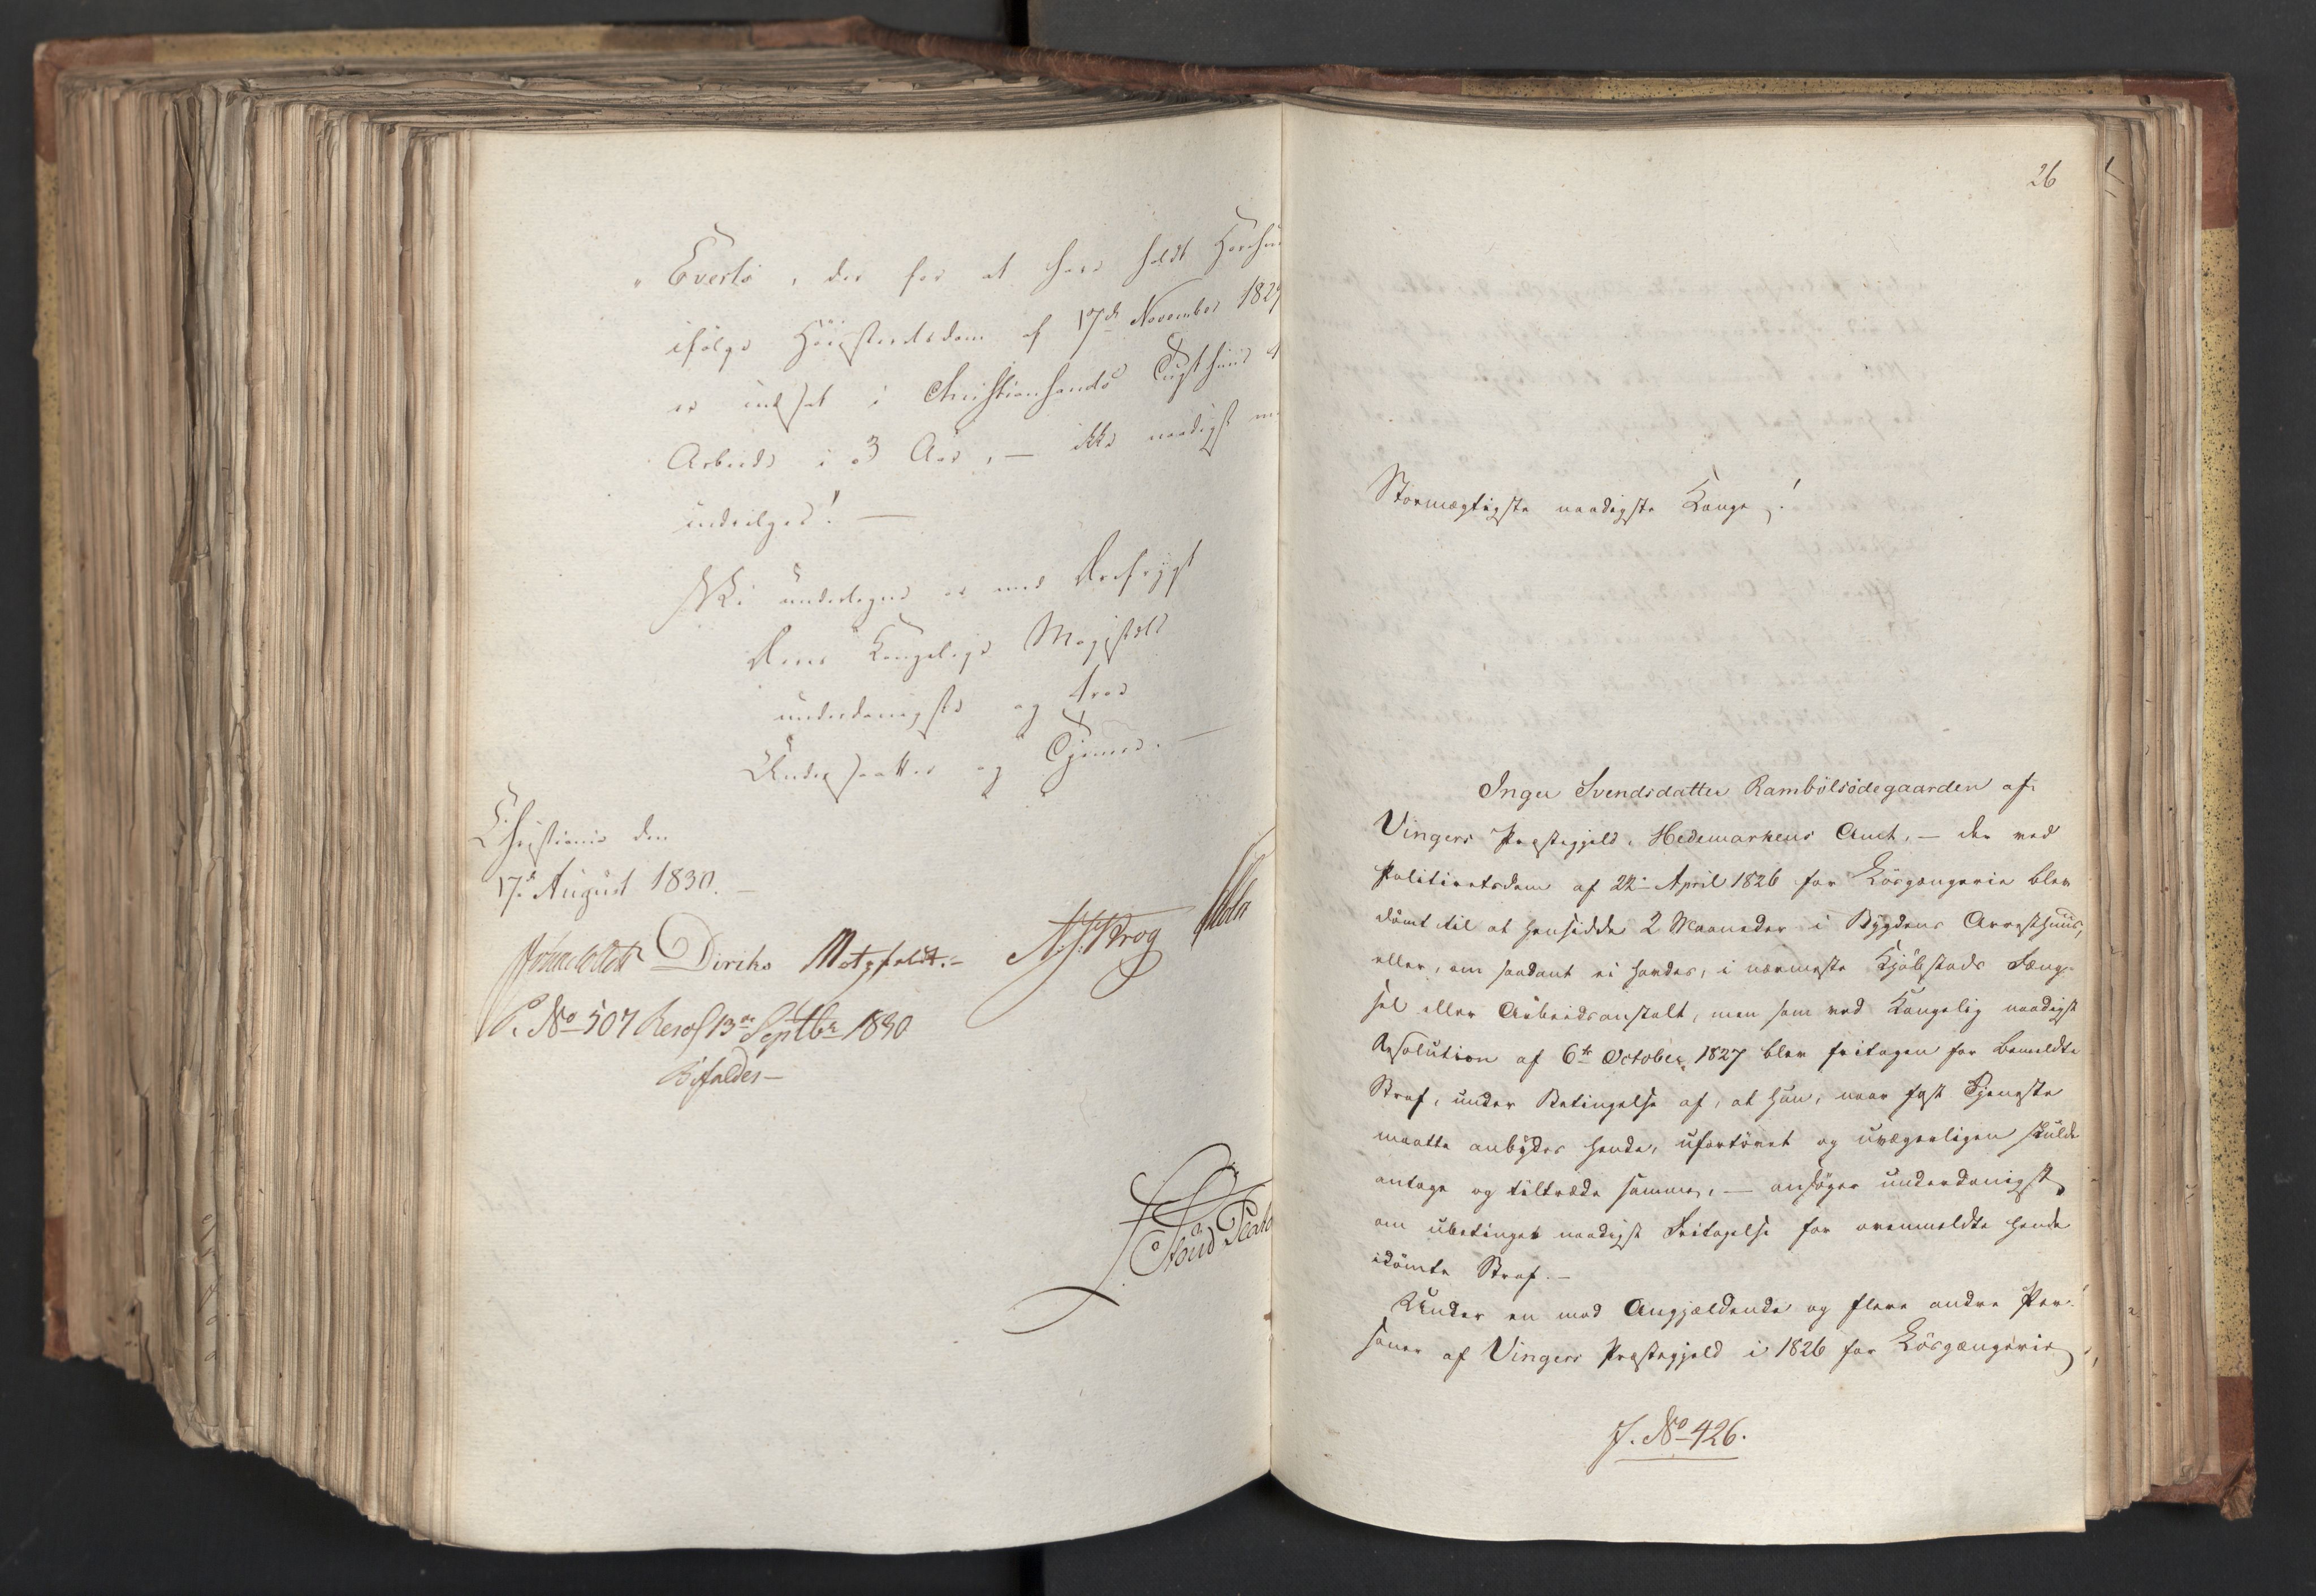 "Evertsø, der for at have holdt Horehuus
ifølge Høiesteretsdom af 17de November 1829
er indsat i Christiansands Tugthuus til
Arbeide i 3 Aar, — ikke naadigst
indvilges! —
Vi underlegne os med Ærefrygt
Deres Kongelige Majestæts
underdanigste og troe
Undersaatter og Tjenere. —
Christiania den
17de August 1830. —
Diriks Motzfeldt. — N. J. Krog
P. No 507 Resol 13de Septbr 1830
Bifaldes —
26
Stormægtigste naadigste Konge!
Inger Svendsdatter Rambölsödegaarden af
Vingers Præstegjeld, Hedemarkens Amt, — der ved
Politieretsdom af 22de April 1826 for Lösgængerie blev
dömt til at hensidde 2 Maaneder i Bÿgdens Arresthuus,
eller, om saadant ei havdes, i nærmeste Kjöbstads Fæng-
sel eller Arbeidsanstalt, men som ved Kongelig naadigst
Resolution af 6te October 1827 blev fritagen for bemeldte
Straf, under Betingelse af, at hun, naar fast Tjeneste
maatte anbÿdes hende, ufortövet og uvægerligen skulde
antage og tiltræde samme, — ansöger underdanigst
om ubetinget naadigst Fritagelse for ovenmeldte hende
idömte Straf. —
Under en mod Angjældende og flere andre Per-
soner af Vingers Præstegjeld i 1826 for Lösgængerie
J. No 426.